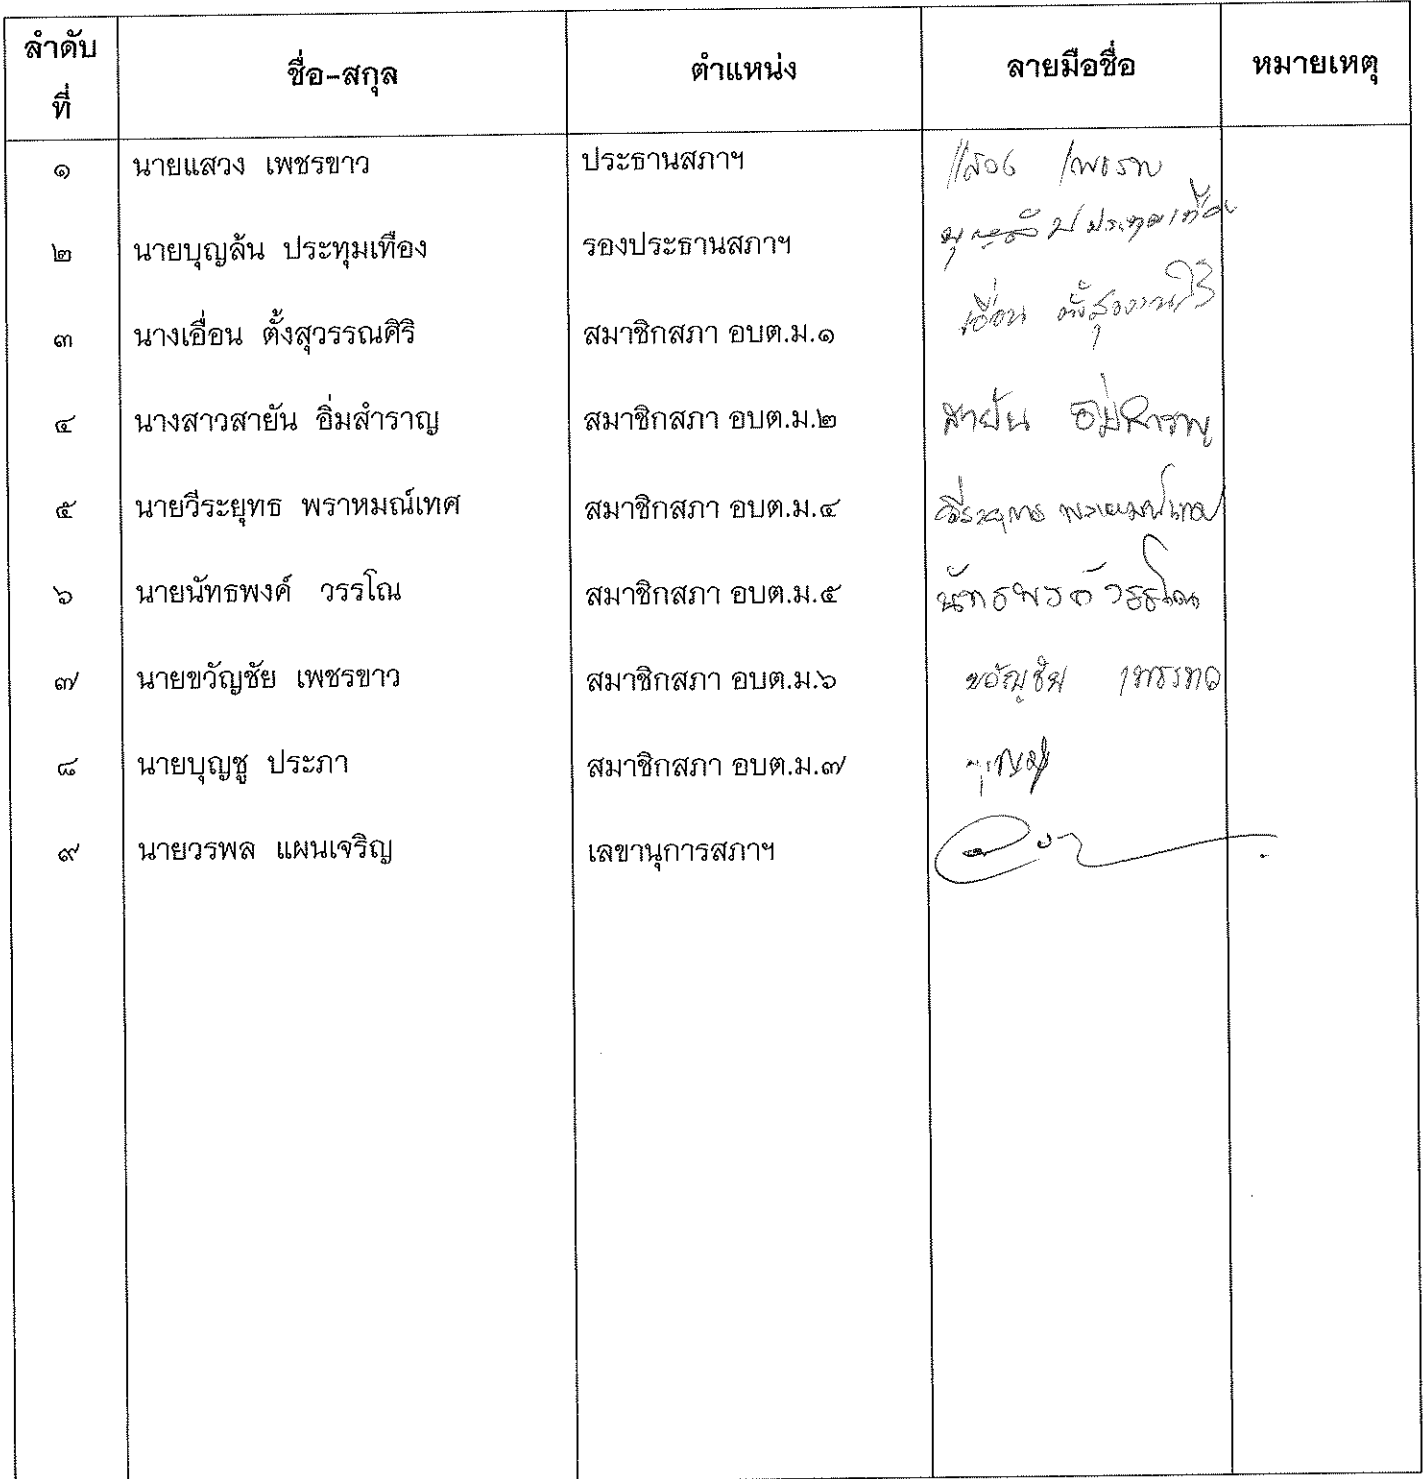 ลำดับ
ที่
ชื่อ-สกุล
ตำแหน่ง
ลายมือชื่อ
หมายเหตุ
๑ นายแสวง เพชรขาว ประธานสภาฯ
๒ นายบุญล้น ประทุมเทือง รองประธานสภาฯ
๓ นางเอื่อน ตั้งสุวรรณศิริ สมาชิกสภา อบต.ม.๑ เอื่อน
๔ นางสาวสายัน อิ่มสำราญ สมาชิกสภา อบต.ม.๒ สายัน
๕ นายวีระยุทธ พราหมณ์เทศ สมาชิกสภา อบต.ม.๔
๖ นายนัทธพงค์ วรรโณ สมาชิกสภา อบต.ม.๕ นัทธพงค์ วรรโณ
๗ นายขวัญชัย เพชรขาว สมาชิกสภา อบต.ม.๖ ขวัญชัย
๘ นายบุญชู ประภา สมาชิกสภา อบต.ม.๗
๙ นายวรพล แผนเจริญ เลขานุการสภาฯ